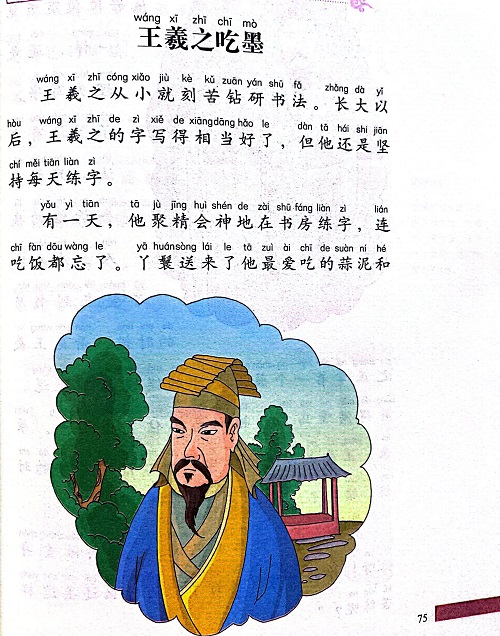 wáng xī zhī chī mò
王羲之吃墨
wáng xī zhī cóng xiǎo jiù kè kǔ zuān yán shū fǎ zhǎng dà yǐ
王羲之从小就刻苦钻研书法。长大以
hòu wáng xī zhī de zì xiě de xiāng dāng hǎo le dàn tā hái shì jiān
后，王羲之的字写得相当好了，但他还是坚
chí měi tiān liàn zì
持每天练字。
yǒu yì tiān tā jù jīng huì shén de zài shū fáng liàn zì lián
有一天，他聚精会神地在书房练字，连
chī fàn dōu wàng le yā huán sòng lái le tā zuì ài chī de suàn ní hé
吃饭都忘了。丫鬟送来了他最爱吃的蒜泥和
75